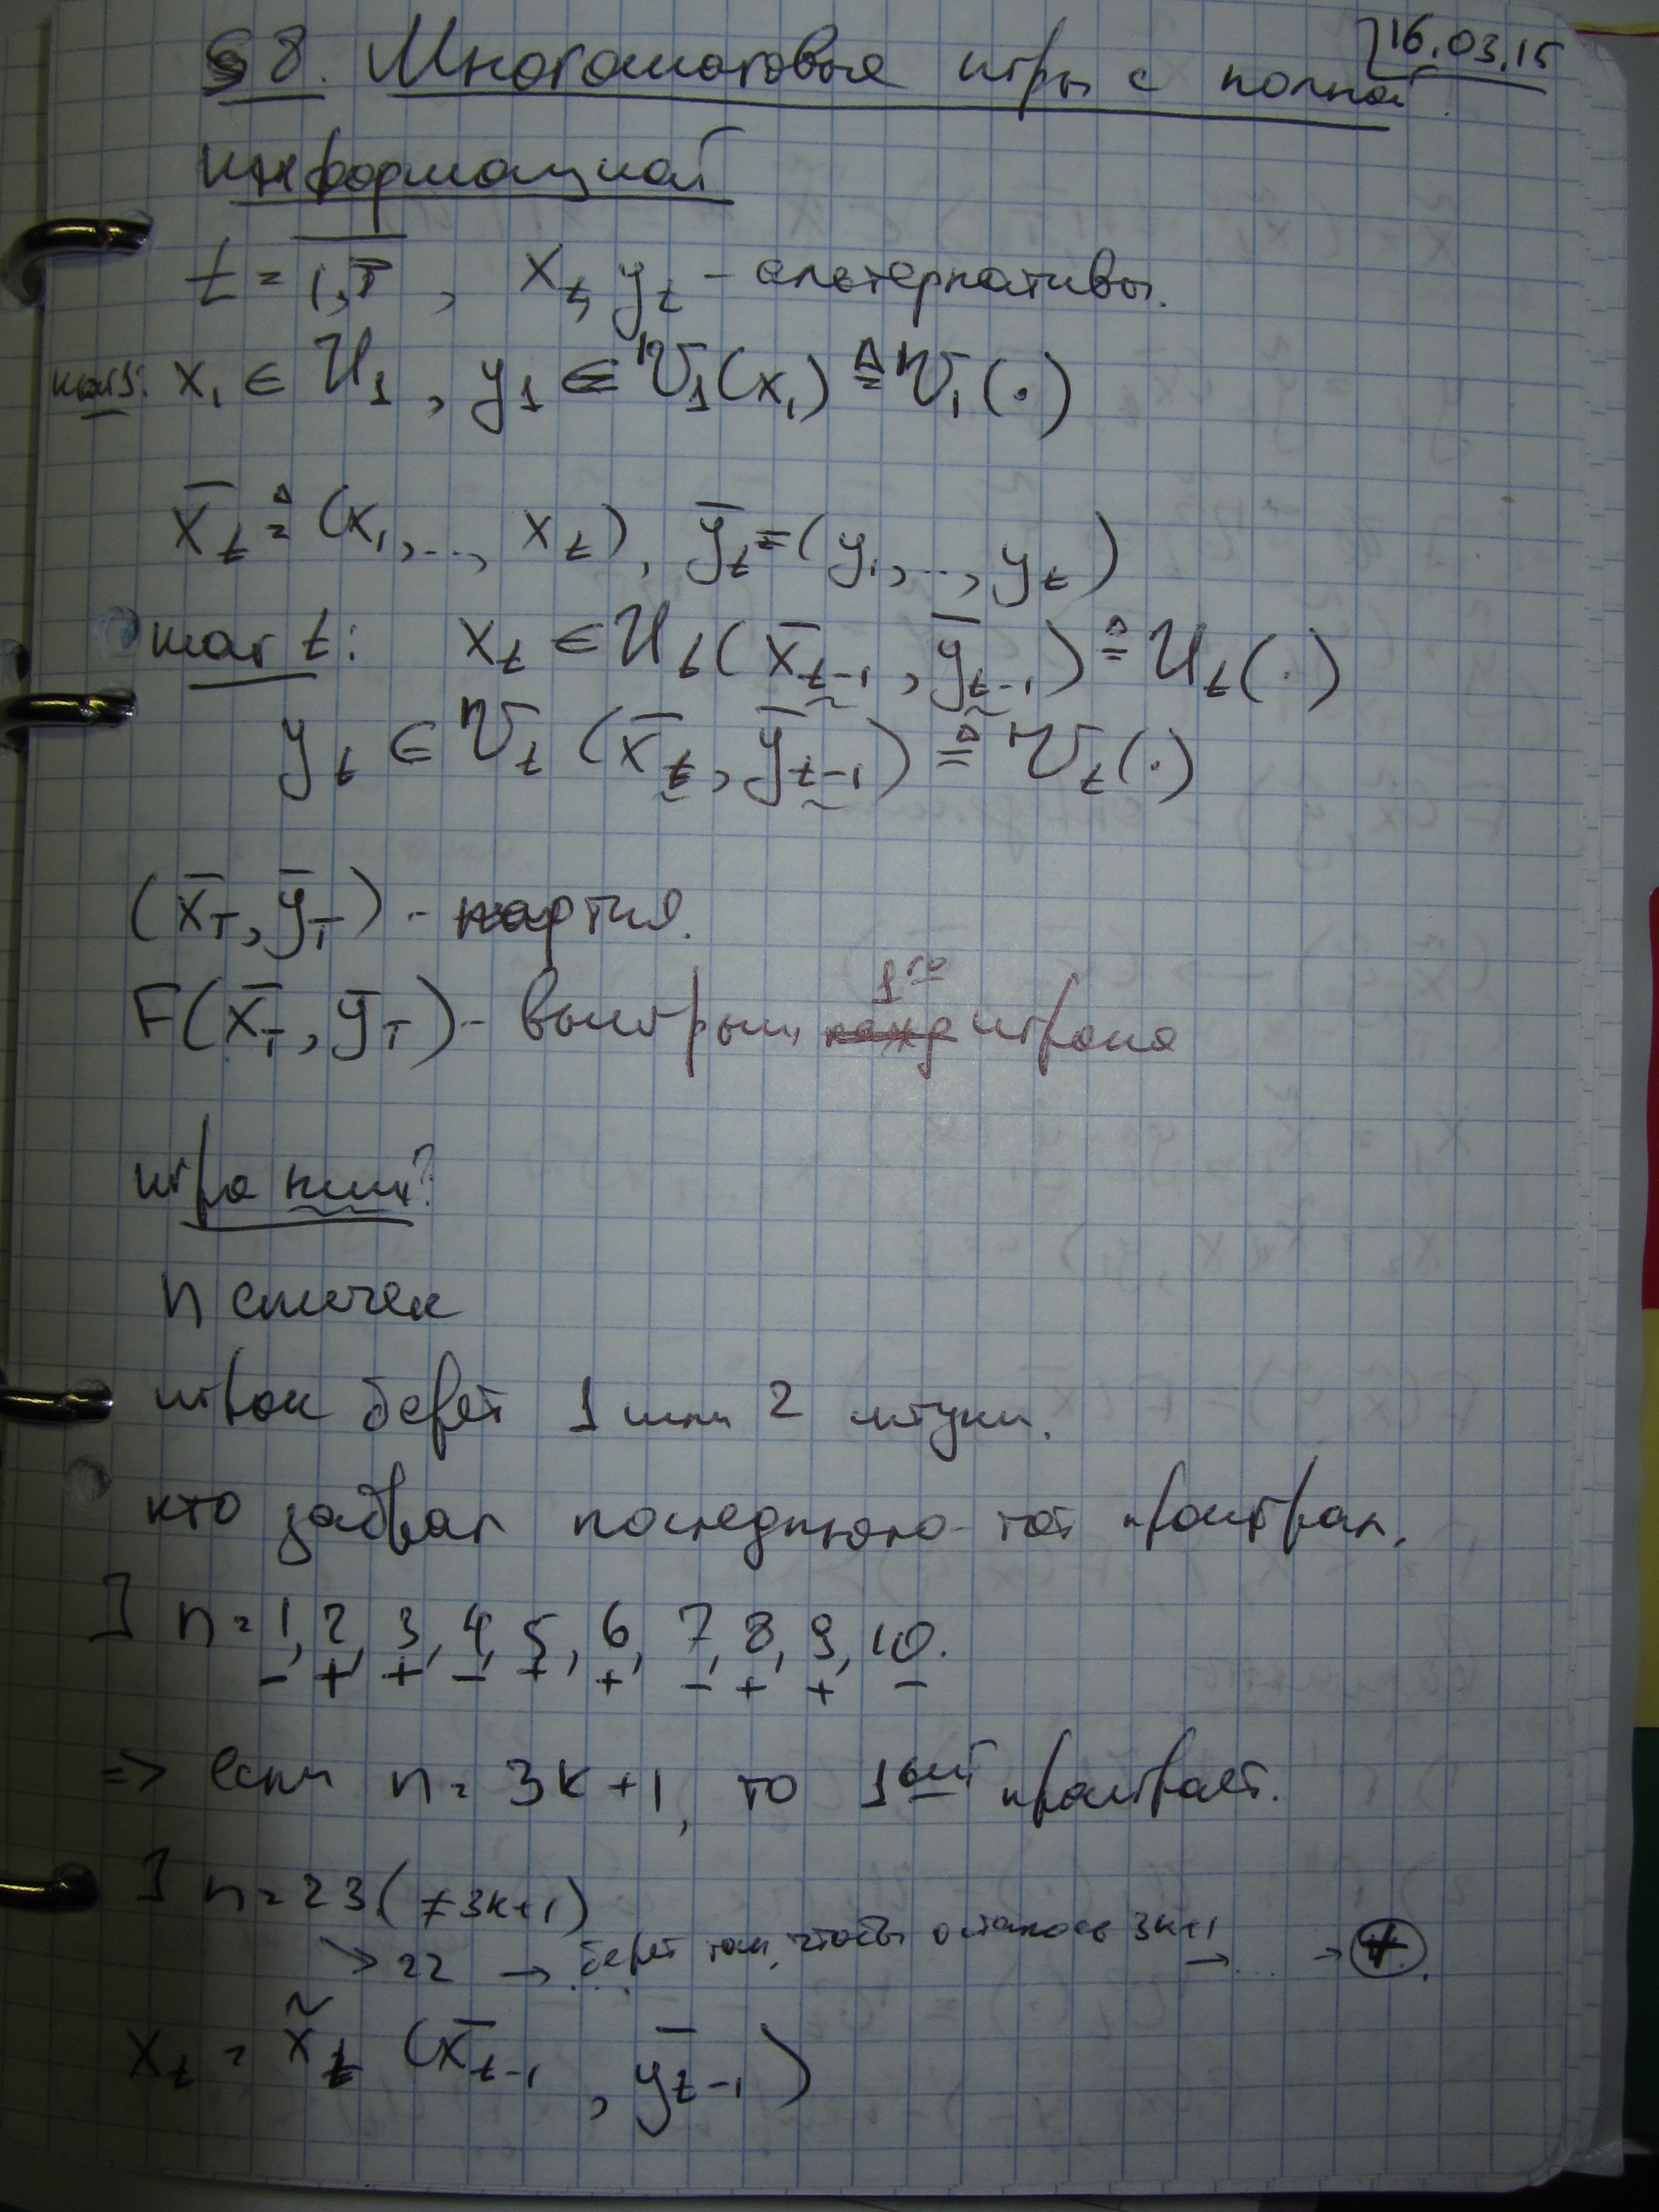 16.03.15
§8. Многошаговые игры с полной
информацией
t = 1,T̅, x_t, y_t – альтернативы.
шаг 1: x₁ ∈ U₁, y₁ ∈ V₁(x₁) ≜ V₁(·)
x̅_t ≜ (x₁,..., x_t), y̅_t = (y₁,.., y_t)
шаг t: x_t ∈ U_t(x̅_{t-1}, y̅_{t-1}) ≜ U_t(·)
y_t ∈ V_t(x̅_t, y̅_{t-1}) ≜ V_t(·)
(x̅_T, y̅_T) – партия.
F(x̅_T, y̅_T) – выигрыш 1го игрока
игра ним?
n спичек
игрок берет 1 или 2 штуки.
кто забрал последнюю – тот проиграл.
] n = 1, 2, 3, 4, 5, 6, 7, 8, 9, 10.
− + + − + + − + + −
⇒ если n = 3k+1, то 1ый проиграет.
] n = 23 (≠ 3k+1)
↘ 22 → ... берет так, чтобы осталось 3k+1 → ... → (+).
x_t = x̃_t (x̅_{t-1}, y̅_{t-1})